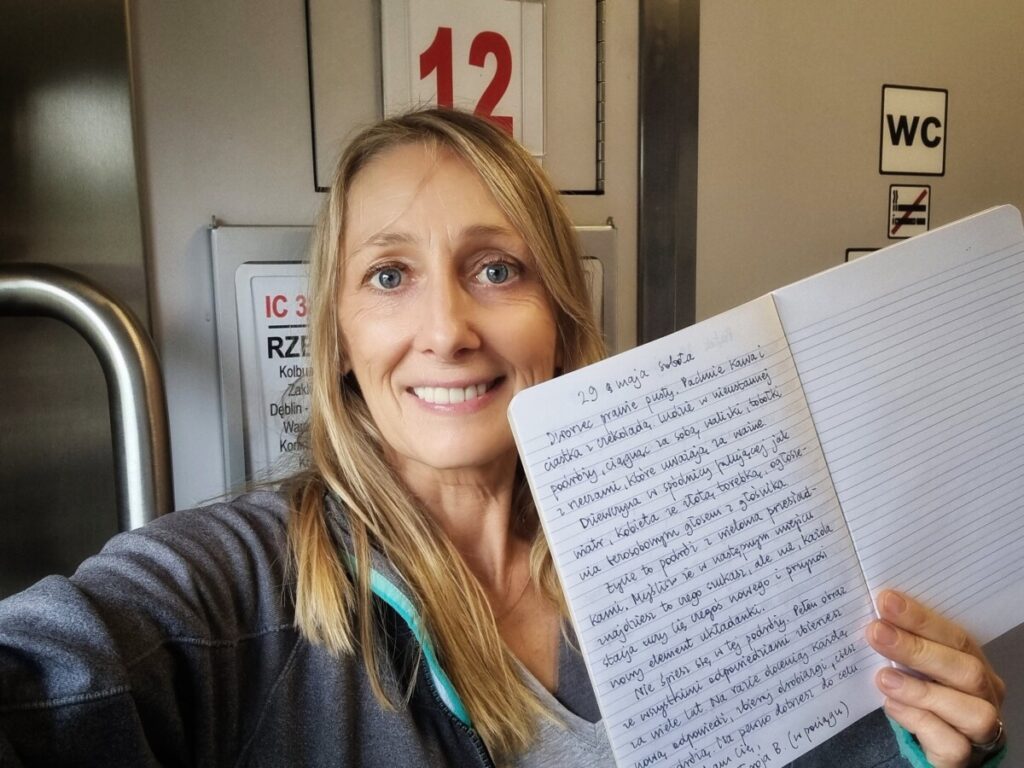 12
WC
IC 3
RZE
Kolbu
Zakl
Dęblin -
War
Koni
29 maja sobota
Dworzec prawie pusty. Pachnie kawa i
ciastka z czekoladą, ludzie w nieustannej
podróży, ciągnąc za sobą walizki, tobołki
z rzeczami, które uważają za ważne.
Dziewczyna w spódnicy falującej jak
wiatr, kobieta ze złotą torebką, ogłosze-
nia bezosobowym głosem z głośnika
Życie to podróż z wieloma przesiad-
kami. Myślisz że w następnym miejscu
znajdziesz to czego szukasz, ale nie, każda
stacja uczy cię czegoś nowego i przynosi
nowy element układanki.
Nie śpiesz się, w tej podróży. Pełen obraz
ze wszystkimi odpowiedziami zbierzesz
za wiele lat. Na razie doceniaj każdą
nową odpowiedź, zbieraj drobiazgi, ciesz
podróżą, i na pewno dotrzesz do celu
am cię,
Twoja B. (w pociągu)